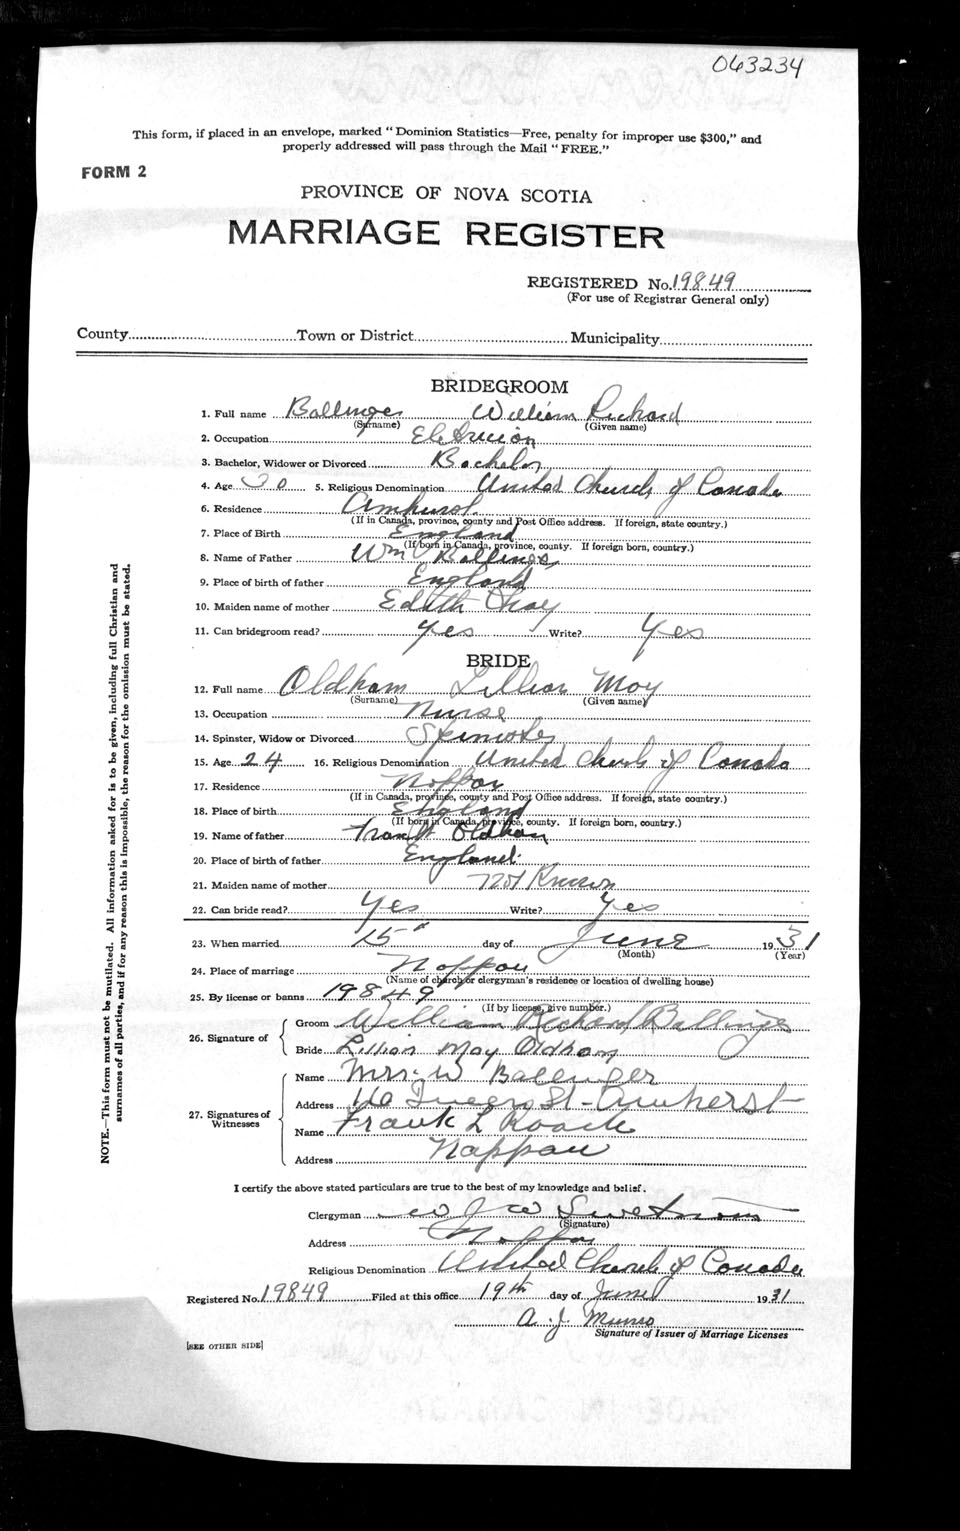 063234
This form, if placed in an envelope, marked "Dominion Statistics—Free, penalty for improper use $300," and
properly addressed will pass through the Mail "FREE."
FORM 2
PROVINCE OF NOVA SCOTIA
MARRIAGE REGISTER
REGISTERED No. 19849
(For use of Registrar General only)
County Town or District Municipality
BRIDEGROOM
1. Full name Ballinger William Richard
(Surname) (Given name)
2. Occupation Eletrician
3. Bachelor, Widower or Divorced Bachelor
4. Age 30 5. Religious Denomination United Church of Canada
6. Residence Amherst
(If in Canada, province, county and Post Office address. If foreign, state country.)
7. Place of Birth England
(If born in Canada, province, county. If foreign born, country.)
8. Name of Father Wm Ballinger
9. Place of birth of father England
10. Maiden name of mother Edith
11. Can bridegroom read? Yes Write? Yes
BRIDE
12. Full name Oldham Lillian May
(Surname) (Given name)
13. Occupation Nurse
14. Spinster, Widow or Divorced Spinster
15. Age 24 16. Religious Denomination United Church of Canada
17. Residence Nappan
(If in Canada, province, county and Post Office address. If foreign, state country.)
18. Place of birth England
(If born in Canada, province, county. If foreign born, country.)
19. Name of father Oldham
20. Place of birth of father England.
21. Maiden name of mother Not Known
22. Can bride read? Yes Write? Yes
23. When married 15" day of June 1931
(Month) (Year)
24. Place of marriage Nappan
(Name of church or clergyman's residence or location of dwelling house)
25. By license or banns 19849
(If by license, give number.)
26. Signature of
Groom William Richard Ballinger
Bride Lillian May Oldham
27. Signatures of Witnesses
Name Mrs. W Balenger
Address St. Amherst
Name Frank L Roach
Address Nappan
I certify the above stated particulars are true to the best of my knowledge and belief.
Clergyman W J W
(Signature)
Address Nappan
Religious Denomination United Church of Canada
Registered No. 19849 Filed at this office 19th day of June 1931
A. J. Munro
Signature of Issuer of Marriage Licenses
[SEE OTHER SIDE]
NOTE.—This form must not be mutilated. All information asked for is to be given, including full Christian and
surnames of all parties, and if for any reason this is impossible, the reason for the omission must be stated.